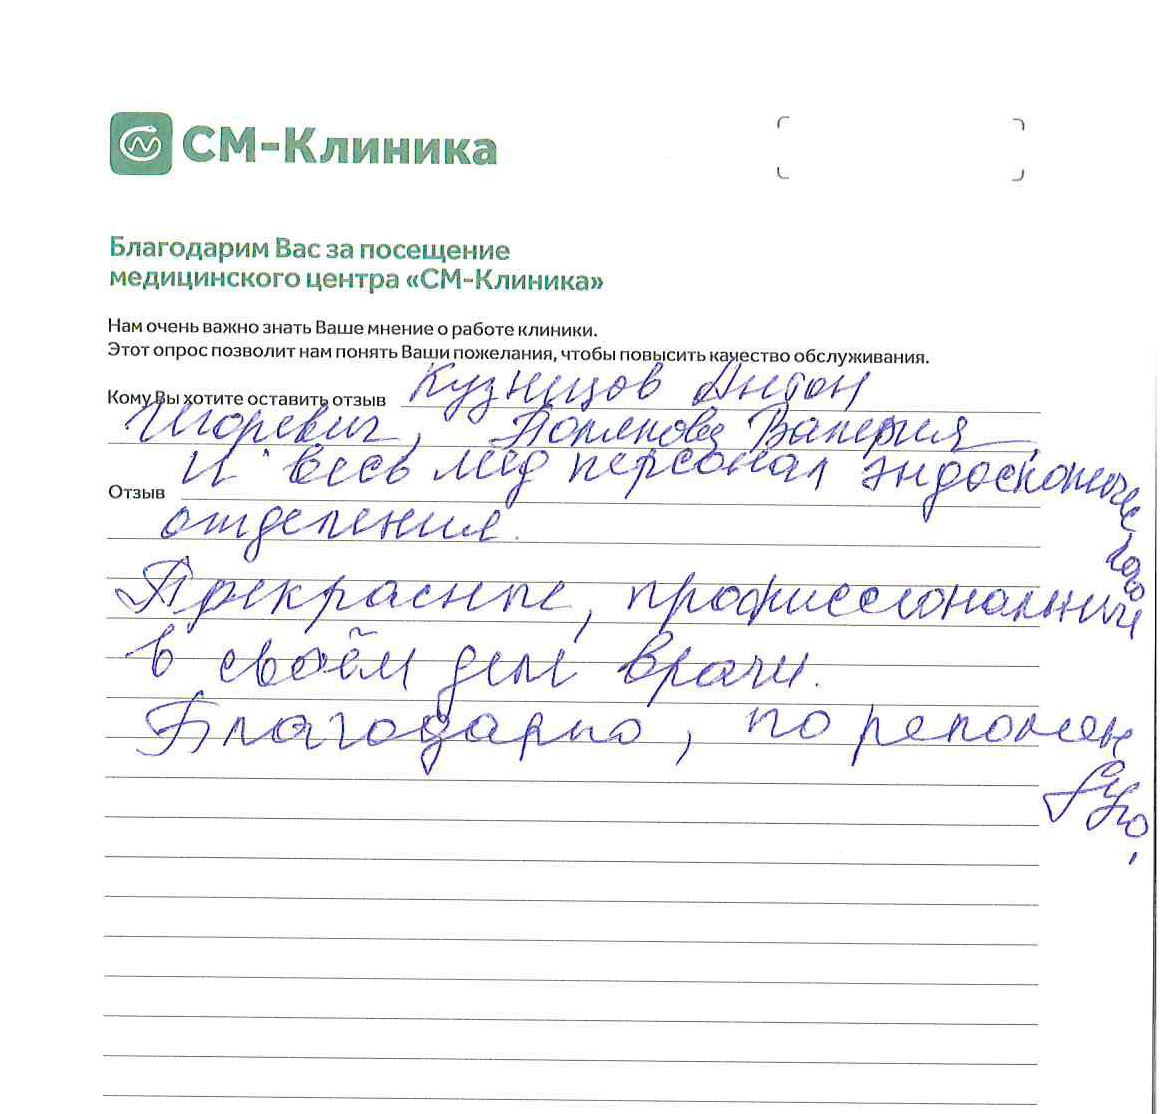 СМ-Клиника
Благодарим Вас за посещение
медицинского центра «СМ-Клиника»
Нам очень важно знать Ваше мнение о работе клиники.
Этот опрос позволит нам понять Ваши пожелания, чтобы повысить качество обслуживания.
Кому Вы хотите оставить отзыв Кузнецов Антон
Игоревич, Полякова Валерия
и весь мед персонал эндоскопического
Отзыв
отделения.
Прекрасные, профессиональный
в своём деле врачи.
Благодарю, по рекомендую.